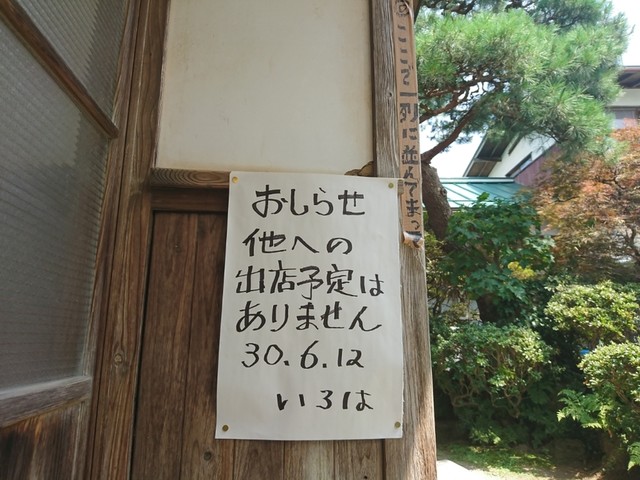 おしらせ
他への
出店予定は
ありません
30.6.12
いろは
ここで一列に並んでまっ